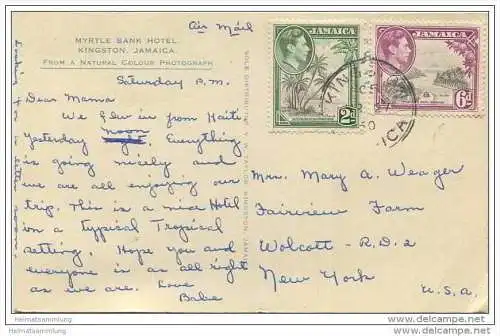 MYRTLE BANK HOTEL,
KINGSTON, JAMAICA.
FROM A NATURAL COLOUR PHOTOGRAPH
Air Mail
Saturday P.M.
Dear Mama
We flew in from Haiti
yesterday noon night, Everything
is going nicely and
we are all enjoying our
trip. This is a nice Hotel
in a typical Tropical
setting. Hope you and
everyone is as all right
as we are. Love
Babe
letter soon.
SOLE DISTRIBUTOR, TAYLOR, KINGSTON, JAMAICA
JAMAICA
2d
JAMAICA
6d
KINGSTON
50
JAMAICA
Mrs. Mary A. Weager
Fairview Farm
Wolcott - R.D. 2
New York
U.S.A.
Heimatsammlung
Heimatsammlung.de
http://www.heimatsammlung.de